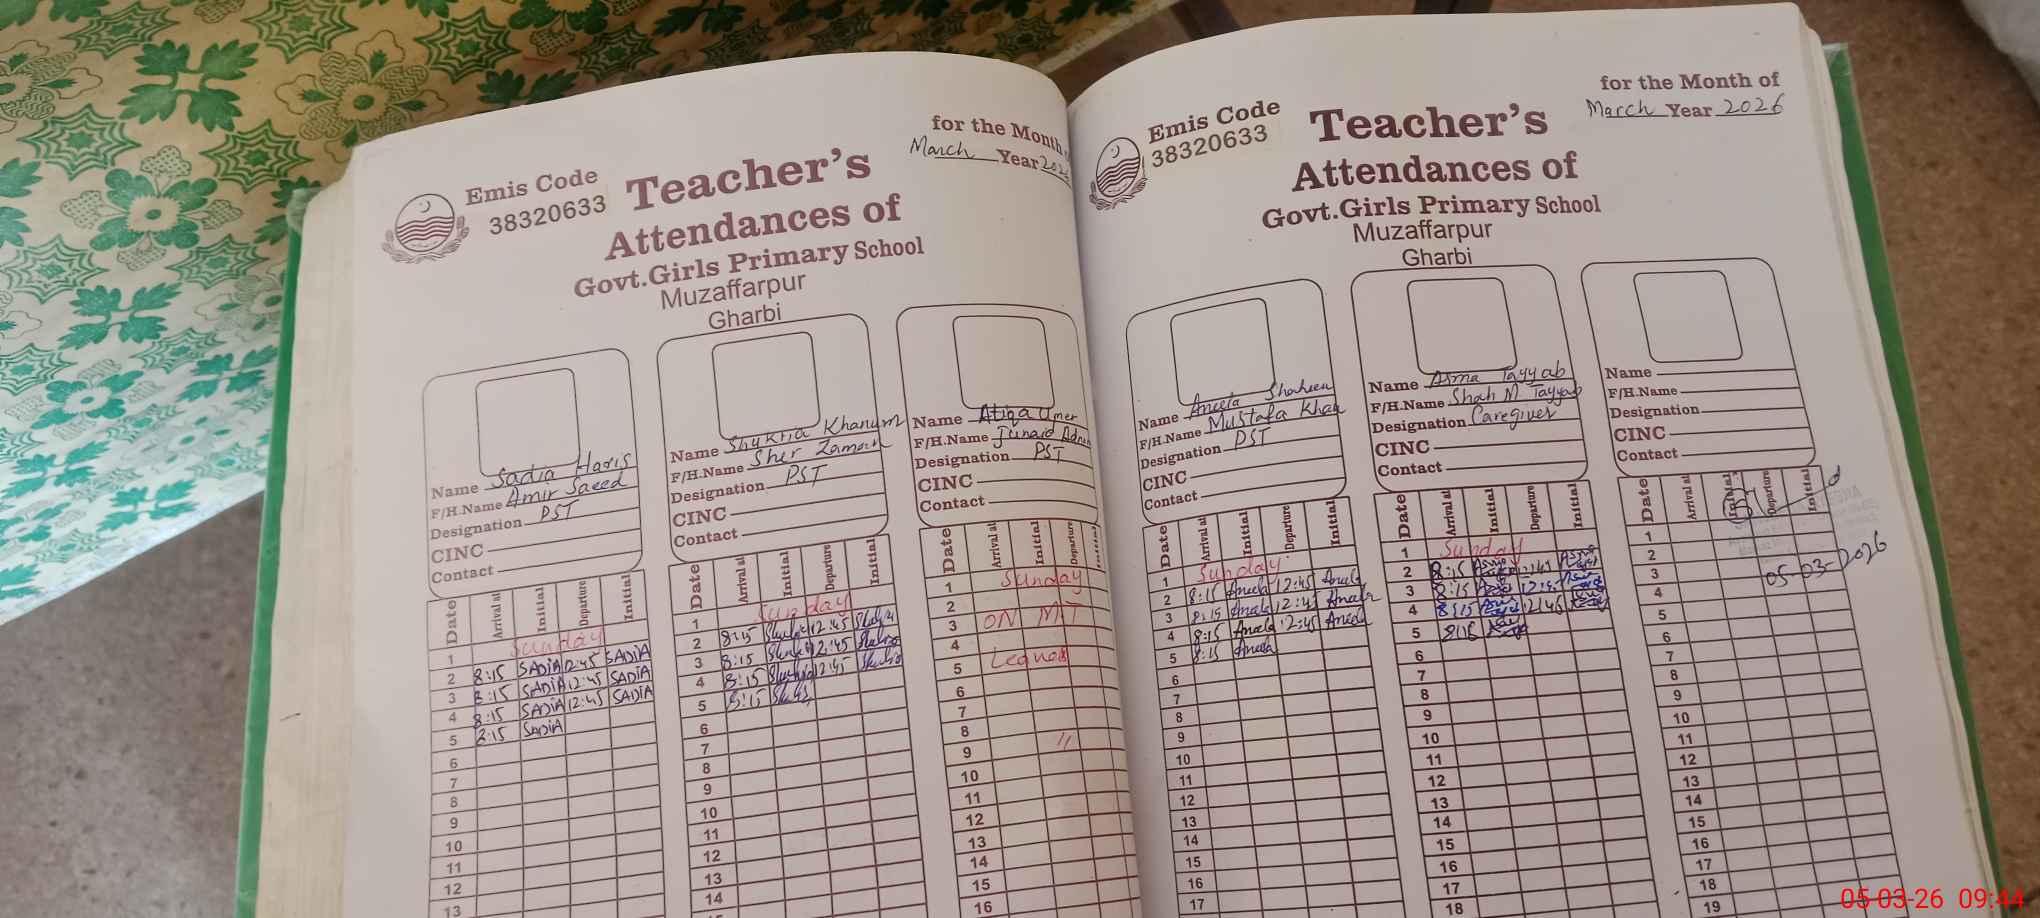 for the Month
March Year 202
Emis Code
38320633
Teacher's
Attendances of
Govt.Girls Primary School
Muzaffarpur
Gharbi
Name Sadia Haris
F/H.Name Amir Saeed
Designation PST
CINC
Contact
Date Arrival at Initial Departure Initial
1 Sunday
2 8:15 SADIA 12:45 SADIA
3 8:15 SADIA 12:45 SADIA
4 8:15 SADIA 12:45 SADIA
5 8:15 SADIA
6
7
8
9
10
11
12
13
Name Shukria Khanum
F/H.Name Sher Zaman
Designation PST
CINC
Contact
Date Arrival at Initial Departure Initial
1 Sunday
2 8:15 12:45
3 8:15 12:45
4 8:15 12:45
5 8:15
6
7
8
9
10
11
12
13
14
Name Atiqa Umer
F/H.Name Junaid Adnan
Designation PST
CINC
Contact
Date Arrival at Initial Departure Initial
1 Sunday
2
3 ON MT
4
5
6
7
8
9 "
10
11
12
13
14
15
16
for the Month of
March Year 2026
Emis Code
38320633
Teacher's
Attendances of
Govt.Girls Primary School
Muzaffarpur
Gharbi
Name Aneela Shaheen
F/H.Name Mustafa Khan
Designation PST
CINC
Contact
Date Arrival at Initial Departure Initial
1 Sunday
2 8:15 Aneela 12:45 Aneela
3 8:15 Aneela 12:45 Aneela
4 8:15 Aneela 12:45 Aneela
5 8:15 Aneela
6
7
8
9
10
11
12
13
14
15
16
17
Name Asma Tayyab
F/H.Name Shah M. Tayyab
Designation Caregiver
CINC
Contact
Date Arrival at Initial Departure Initial
1 Sunday
2 8:15 Asma 12:45 Asma
3 8:15 12:45
4 8:15 12:46
5 8:16
6
7
8
9
10
11
12
13
14
15
16
17
18
Name
F/H.Name
Designation
CINC
Contact
Date Arrival at Initial Departure Initial
1
2
3 05-03-2026
4
5
6
7
8
9
10
11
12
13
14
15
16
17
18
19
05-03-26 09:44